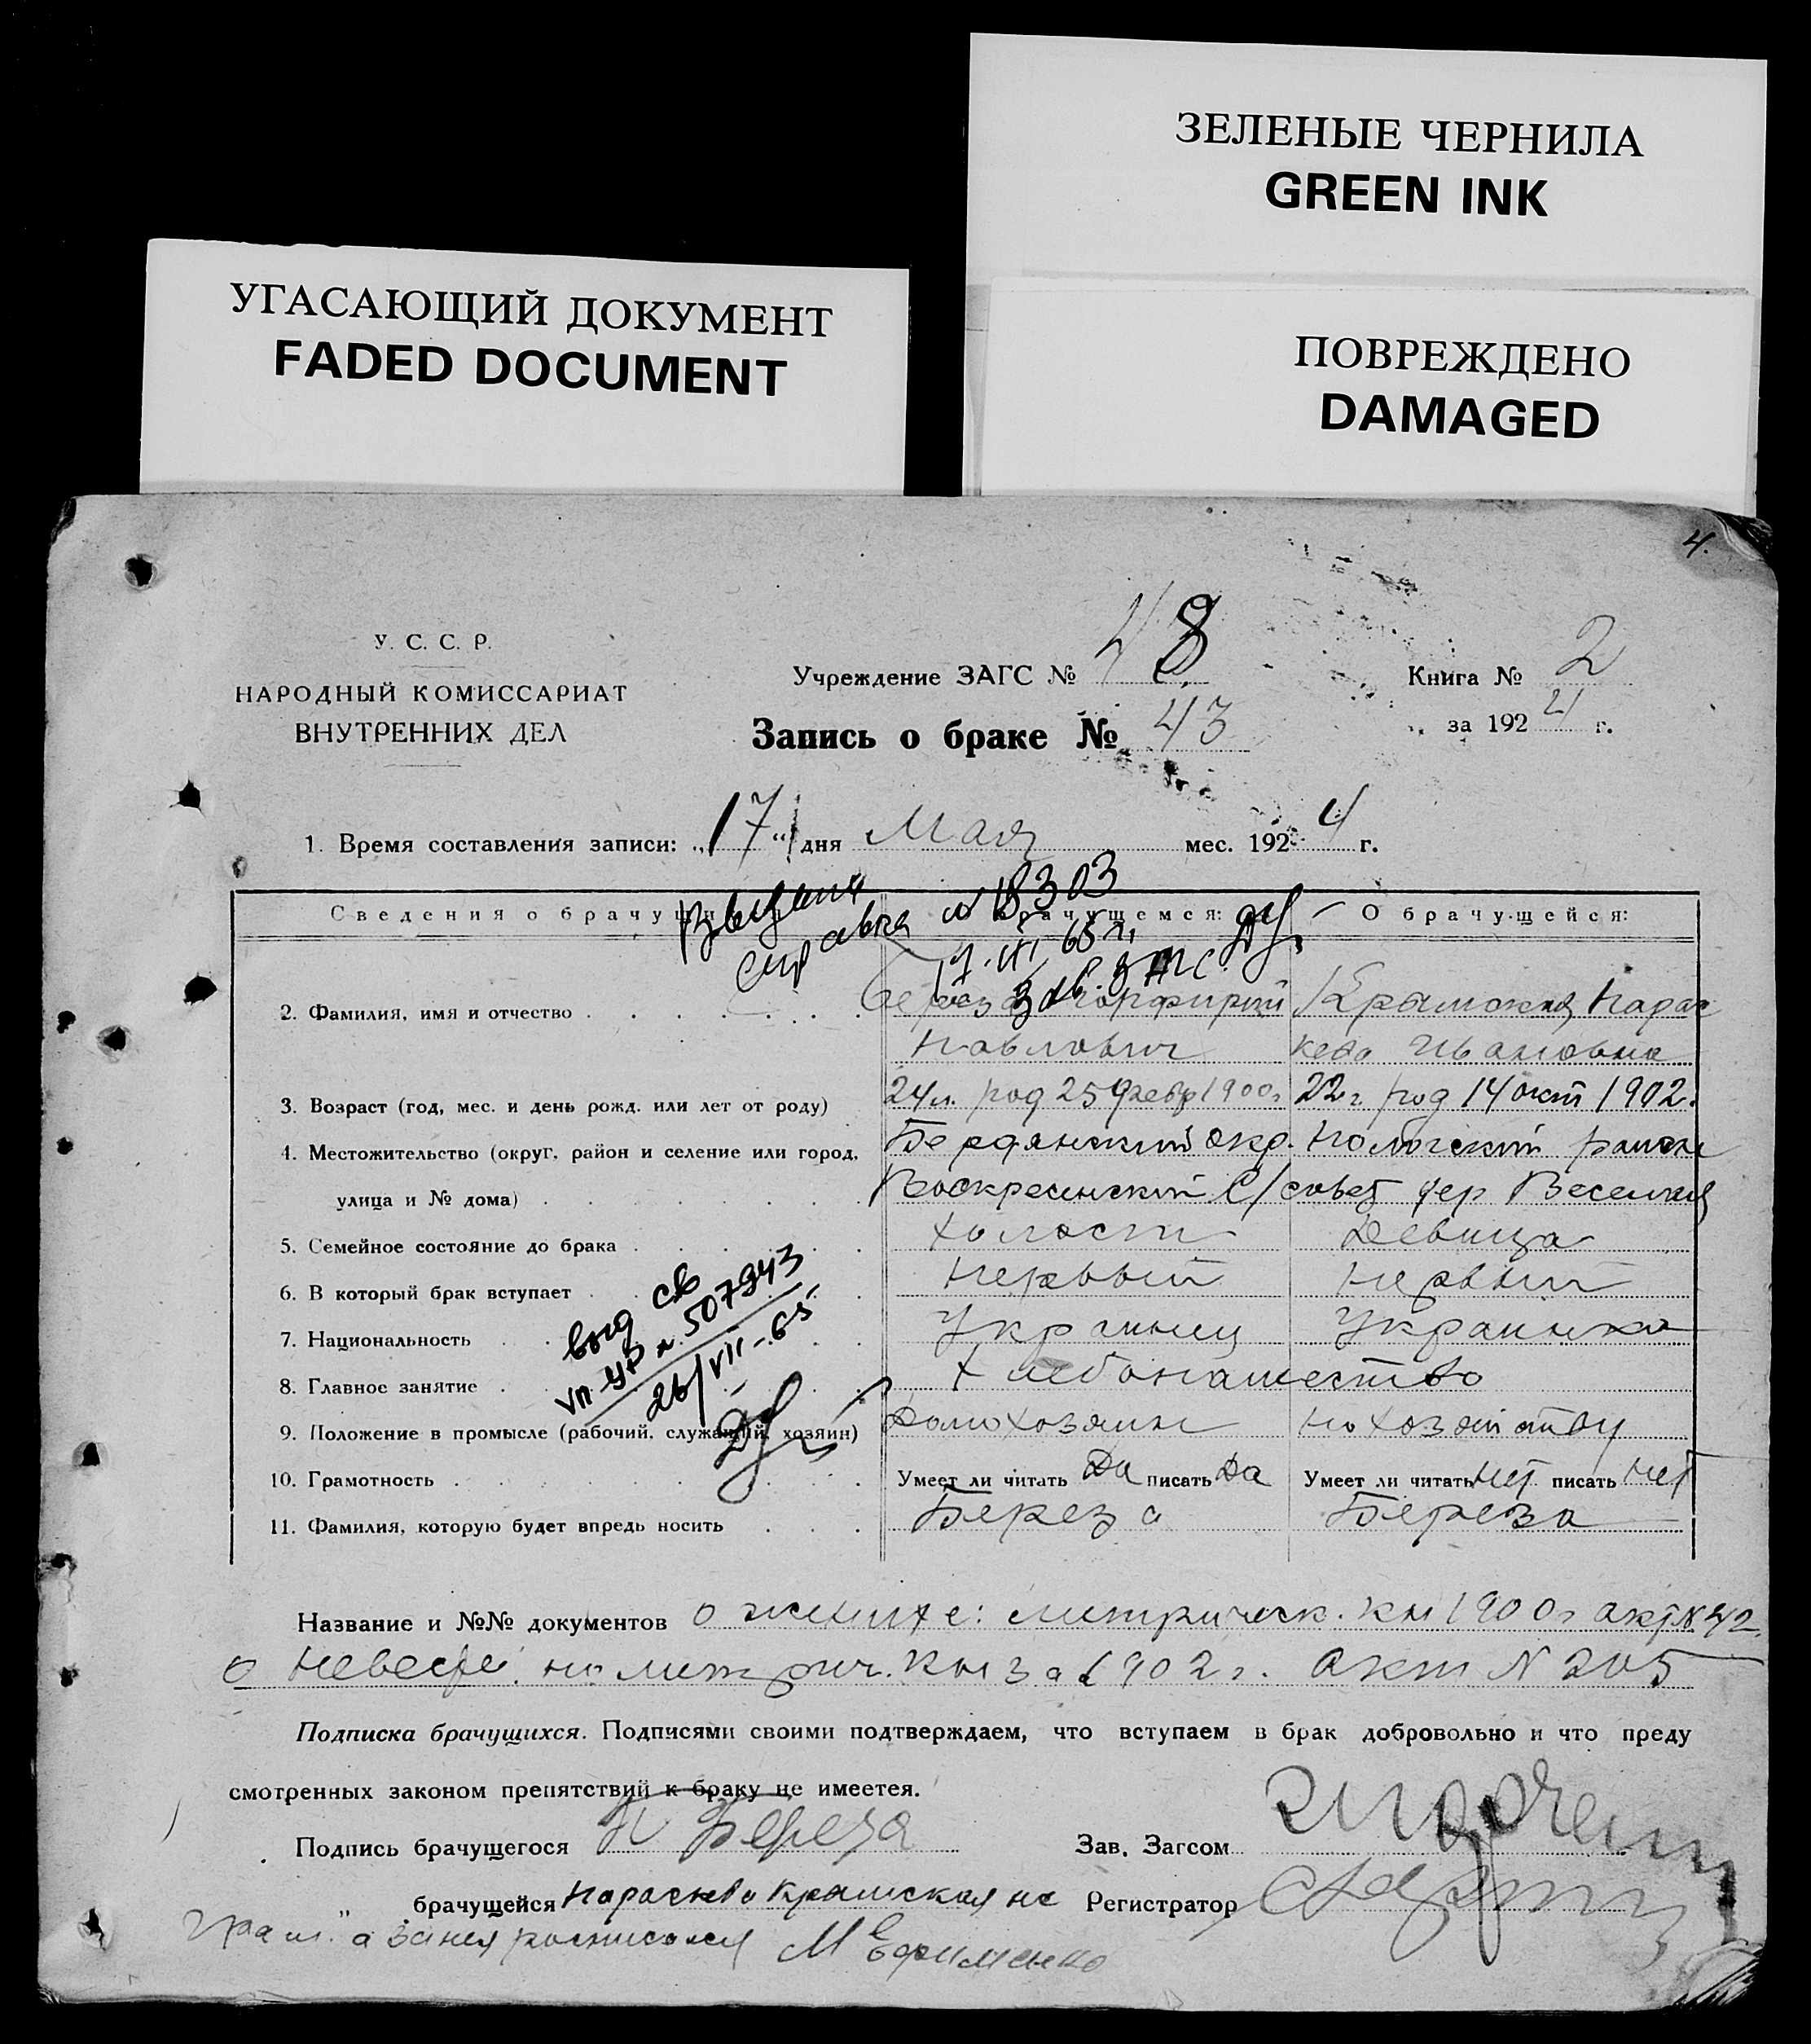 ЗЕЛЕНЫЕ ЧЕРНИЛА
GREEN INK
УГАСАЮЩИЙ ДОКУМЕНТ
FADED DOCUMENT
ПОВРЕЖДЕНО
DAMAGED
4.
У. С. С. Р.
НАРОДНЫЙ КОМИССАРИАТ
ВНУТРЕННИХ ДЕЛ
Учреждение ЗАГС № 48
Книга № 2
за 1924 г.
Запись о браке № 43
1. Время составления записи: „17“ дня Мая мес. 1924 г.
Сведения о брачущихся О брачущемся: О брачущейся:
Выдана
справка № 18303
65 г.
Зав. ЗАГС
2. Фамилия, имя и отчество Береза Порфирий Крымская Парас
Павлович кева Ивановна
3. Возраст (год, мес. и день рожд. или лет от роду) 24 л. род 25 февр 1900 г 22 г. род 14 окт 1902.
4. Местожительство (округ, район и селение или город, Бердянский окр. Пологский район
улица и № дома) Воскресенский С/совет дер Веселая
5. Семейное состояние до брака холост Девица
6. В который брак вступает первый первый
7. Национальность Украинец Украинка
8. Главное занятие Хлебопашество
9. Положение в промысле (рабочий, служащий, хозяин) Домохозяин по хозяйству
10. Грамотность Умеет ли читать Да писать Да Умеет ли читать Нет писать Нет
11. Фамилия, которую будет впредь носить Береза Береза
выд св
VП-УР №. 507943
26/VII-65
Название и №№ документов о женихе: метрическ. кн 1900 г акт № 42.
о невесте по метрич. кн за 1902 г. Акт N 205
Подписка брачущихся. Подписями своими подтверждаем, что вступаем в брак добровольно и что преду
смотренных законом препятствий к браку не имеетея.
Подпись брачущегося П Береза Зав. Загсом
„ брачущейся Параскева Крымская не Регистратор
грам. а за нея росписался М Ефименко